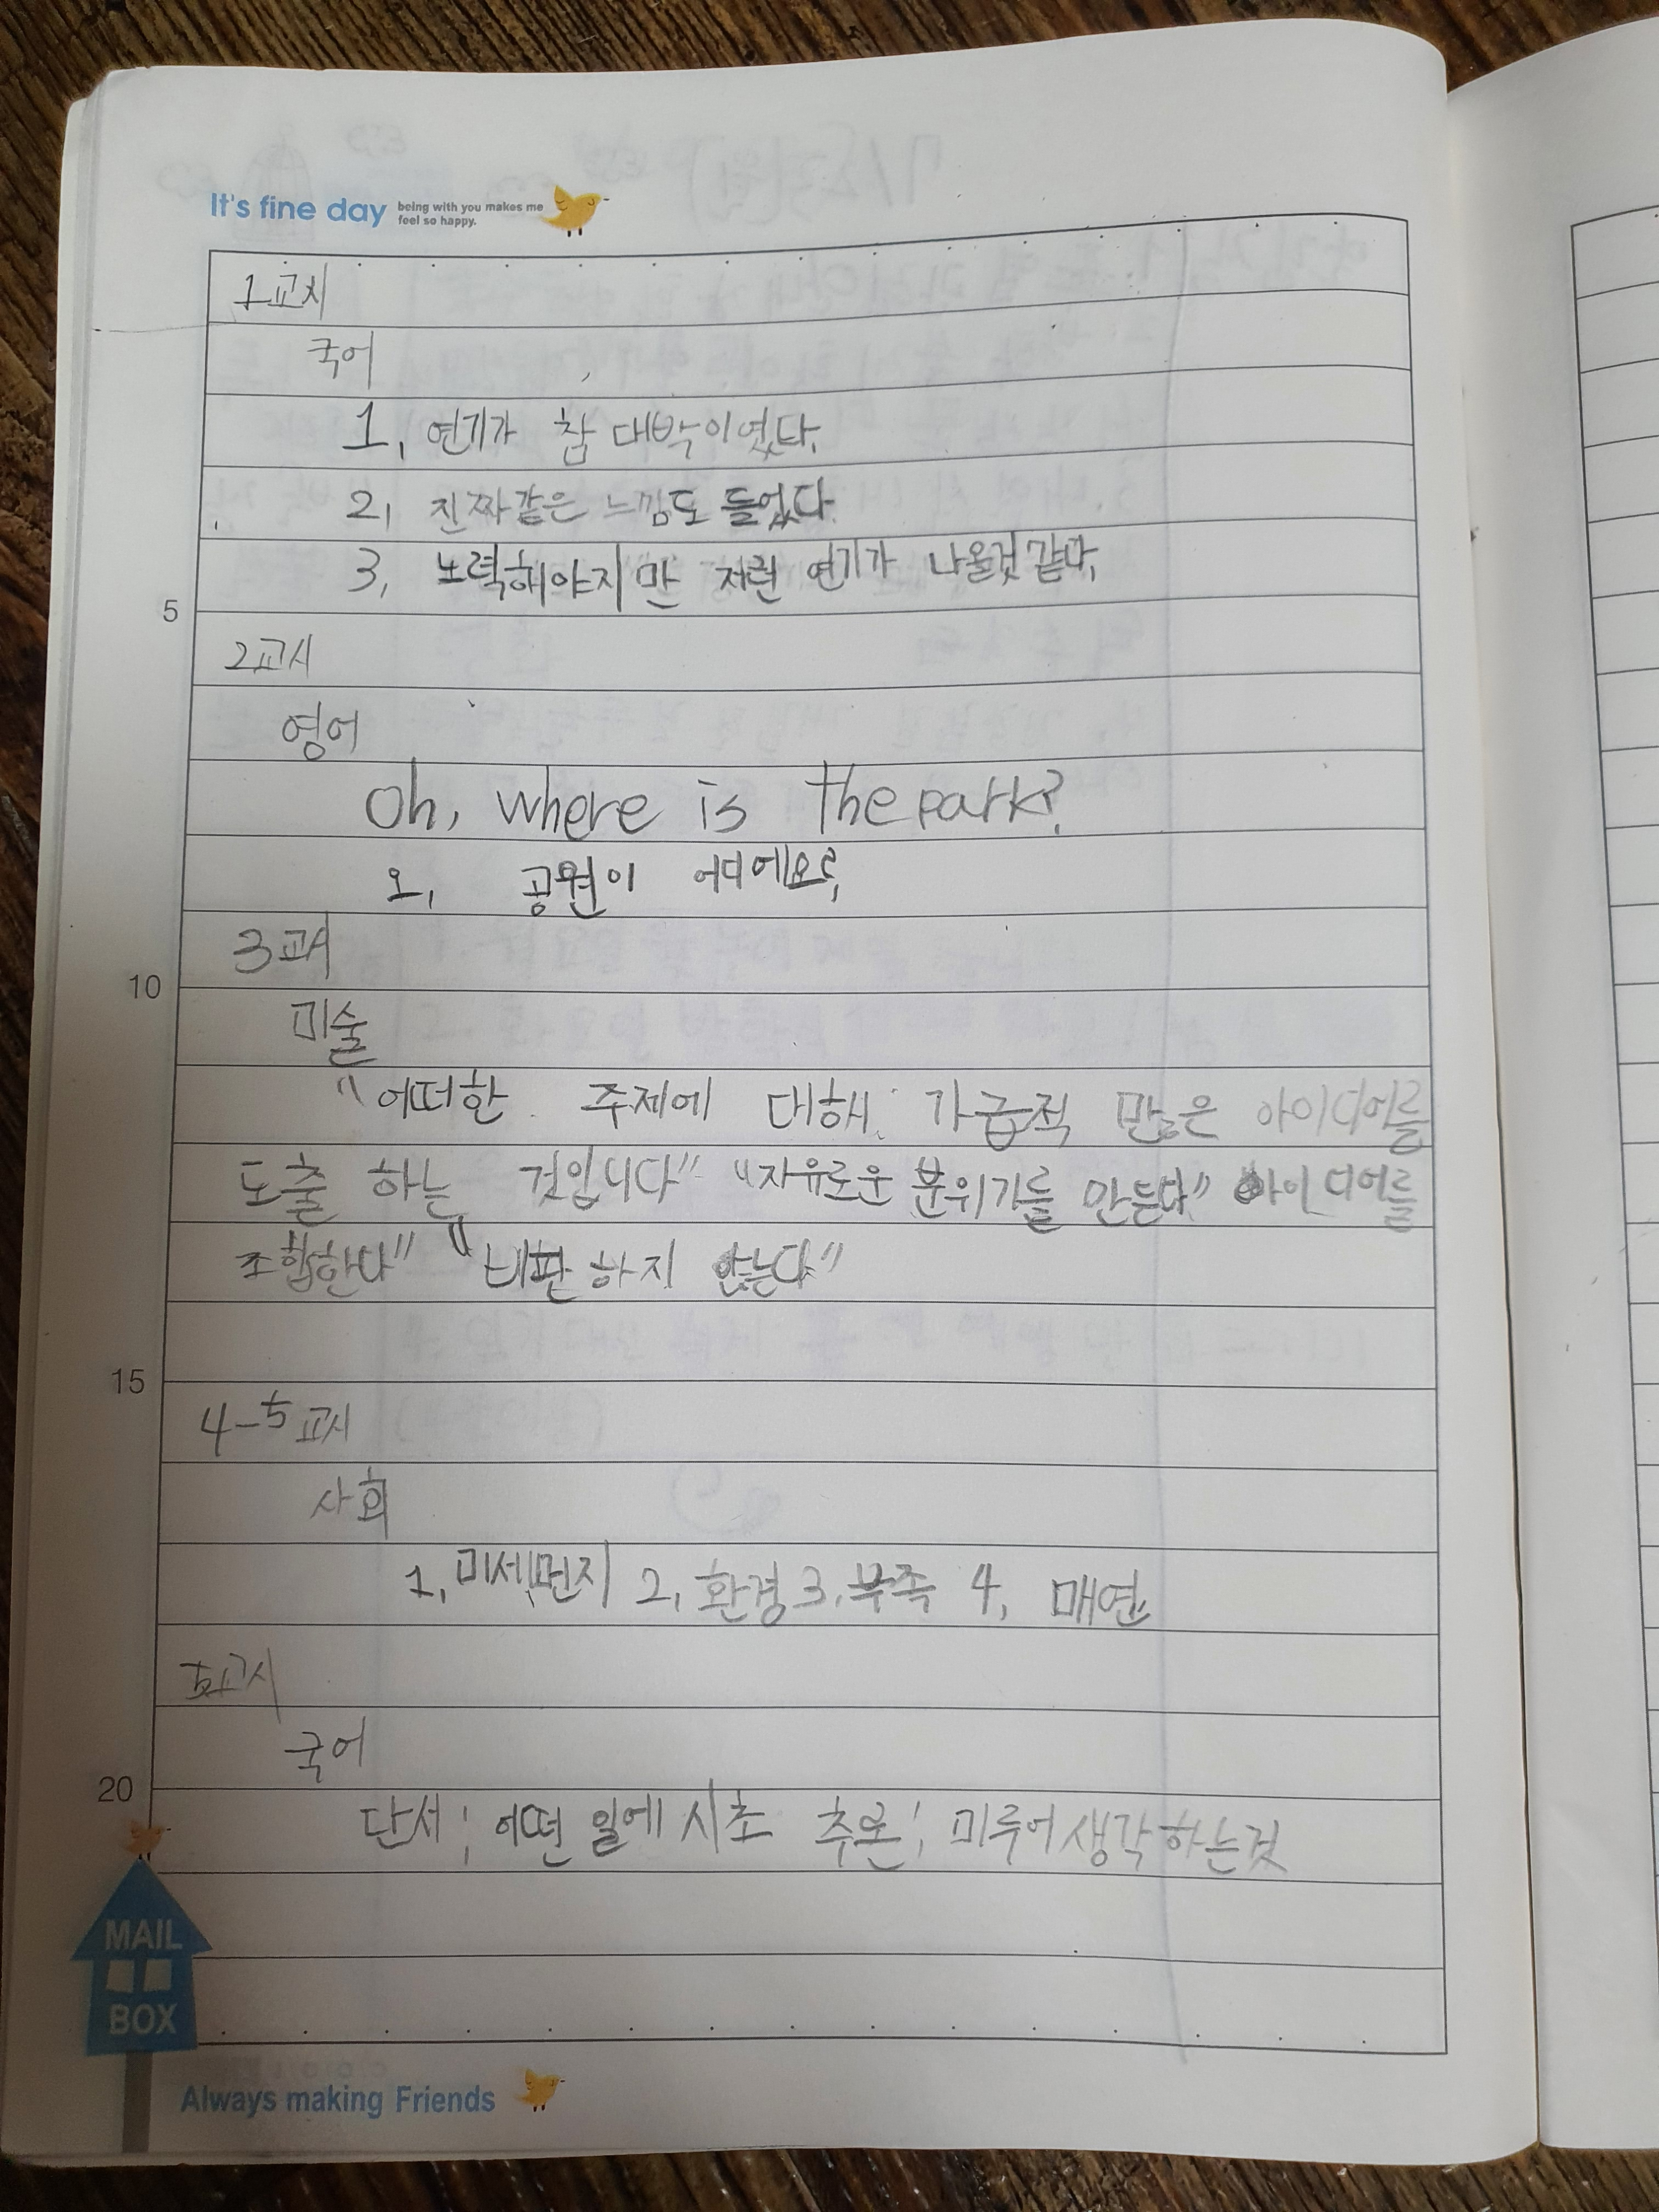 It's fine day being with you makes me feel so happy.
1교시
국어
1, 연기가 참 대박이였다.
2, 진짜같은 느낌도 들었다.
3, 노력해야지만 저런 연기가 나올것 같다,
5
2교시
영어
Oh, where is the park?
오, 공원이 어디에요?
3교시
10
미술
"어떠한 주제에 대해 가급적 많은 아이디어를
도출 하는 것입니다" "자유로운 분위기를 만든다" 아이디어를
조합한다" "비판하지 않는다"
15
4-5교시
사회
1, 미세먼지 2, 환경 3, 부족 4, 매연
교시
국어
20
단서: 어떤 일에 시초 추론: 미루어 생각하는것
MAIL
BOX
Always making Friends